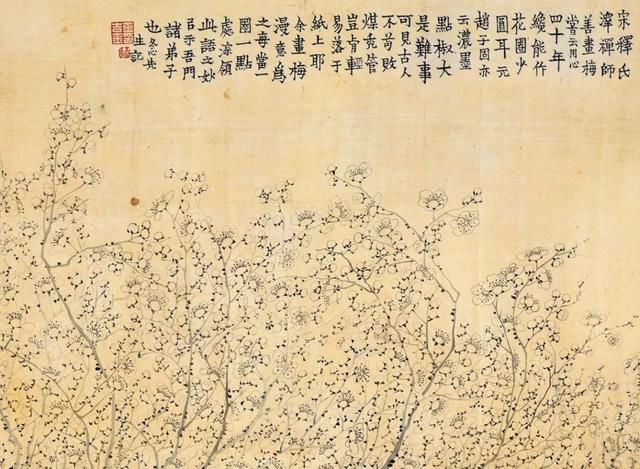 宋釋氏
澤禪師
善畫梅
嘗云用心
四十年
纔能作
花圈少
圓耳元
趙子固亦
云濃墨
點椒大
是難事
可見古人
不苟敗
煤禿管
豈肯輕
易落于
紙上耶
余畫梅
漫意為
之每當一
圈一點
處深領
此語之妙
㠯示吾門
諸弟子
也冬心先
生記